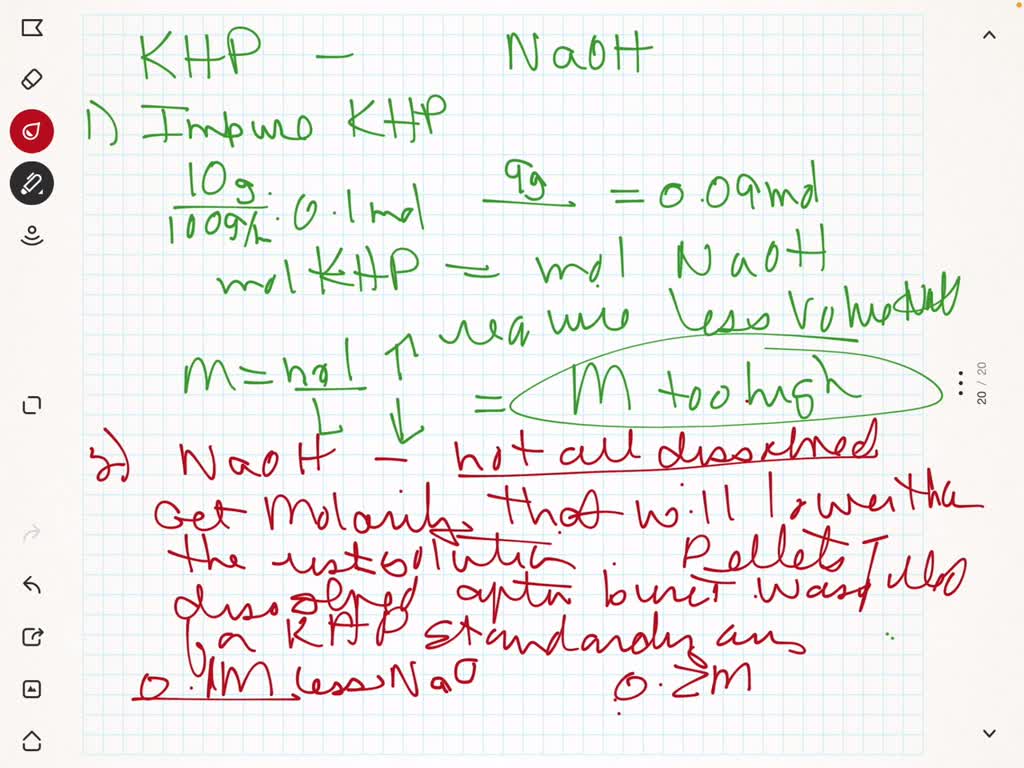 KHP - NaOH
1) Impure KHP
10g 9g
100g/ · 0.1 mol = 0.09 mol
mol KHP = mol NaOH
require less volume
M = mol ↑
L ↓ = M too high
2) NaOH - not all dissolved
Get Molarity that will lower than
the rest solution Pellets
dissolved after buret was filled
for KHP standardiz
0.1M less NaO 0.2M
20 / 20